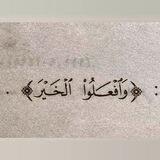 : ﴿وَٱفْعَلُوا۟ ٱلْخَيْرَ﴾ .